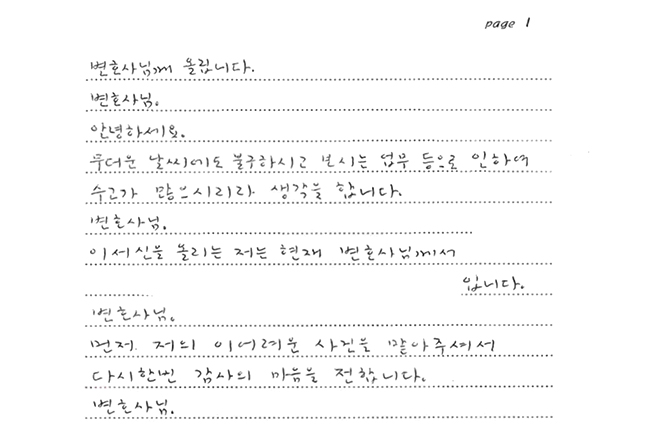 page 1
변호사님께 올립니다.
변호사님.
안녕하세요.
무더운 날씨에도 불구하시고 보시는 업무 등으로 인하여
수고가 많으시리라 생각을 합니다.
변호사님.
이서신을 올리는 저는 현재 변호사님께서
입니다.
변호사님.
먼저 저의 이어려운 사건을 맡아주셔서
다시한번 감사의 마음을 전합니다.
변호사님.